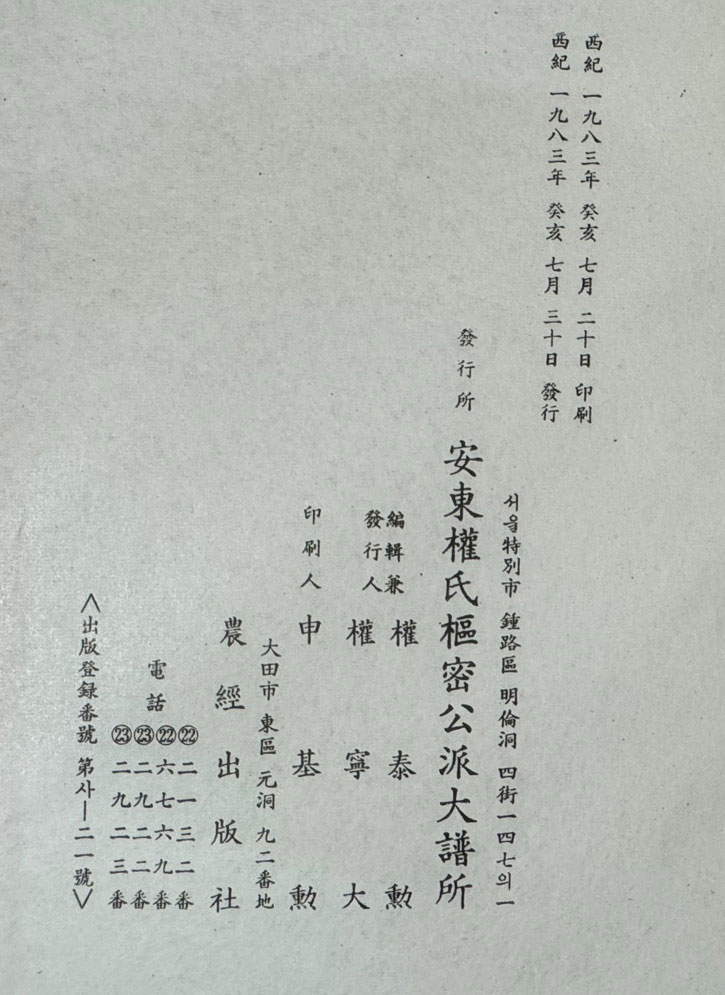 西紀 一九八三年 癸亥 七月 二十日 印刷
西紀 一九八三年 癸亥 七月 三十日 發行
서울特別市 鍾路區 明倫洞 四街一四七의一
發行所 安東權氏樞密公派大譜所
編輯兼 權泰勳
發行人 權寧大
印刷人 申基勳
大田市 東區 元洞 九二番地
農經出版社
電話 ㉒二一三二番
㉒六七六九番
㉓二九二二番
㉓二九二三番
〈出版登録番號 第사—二一號〉